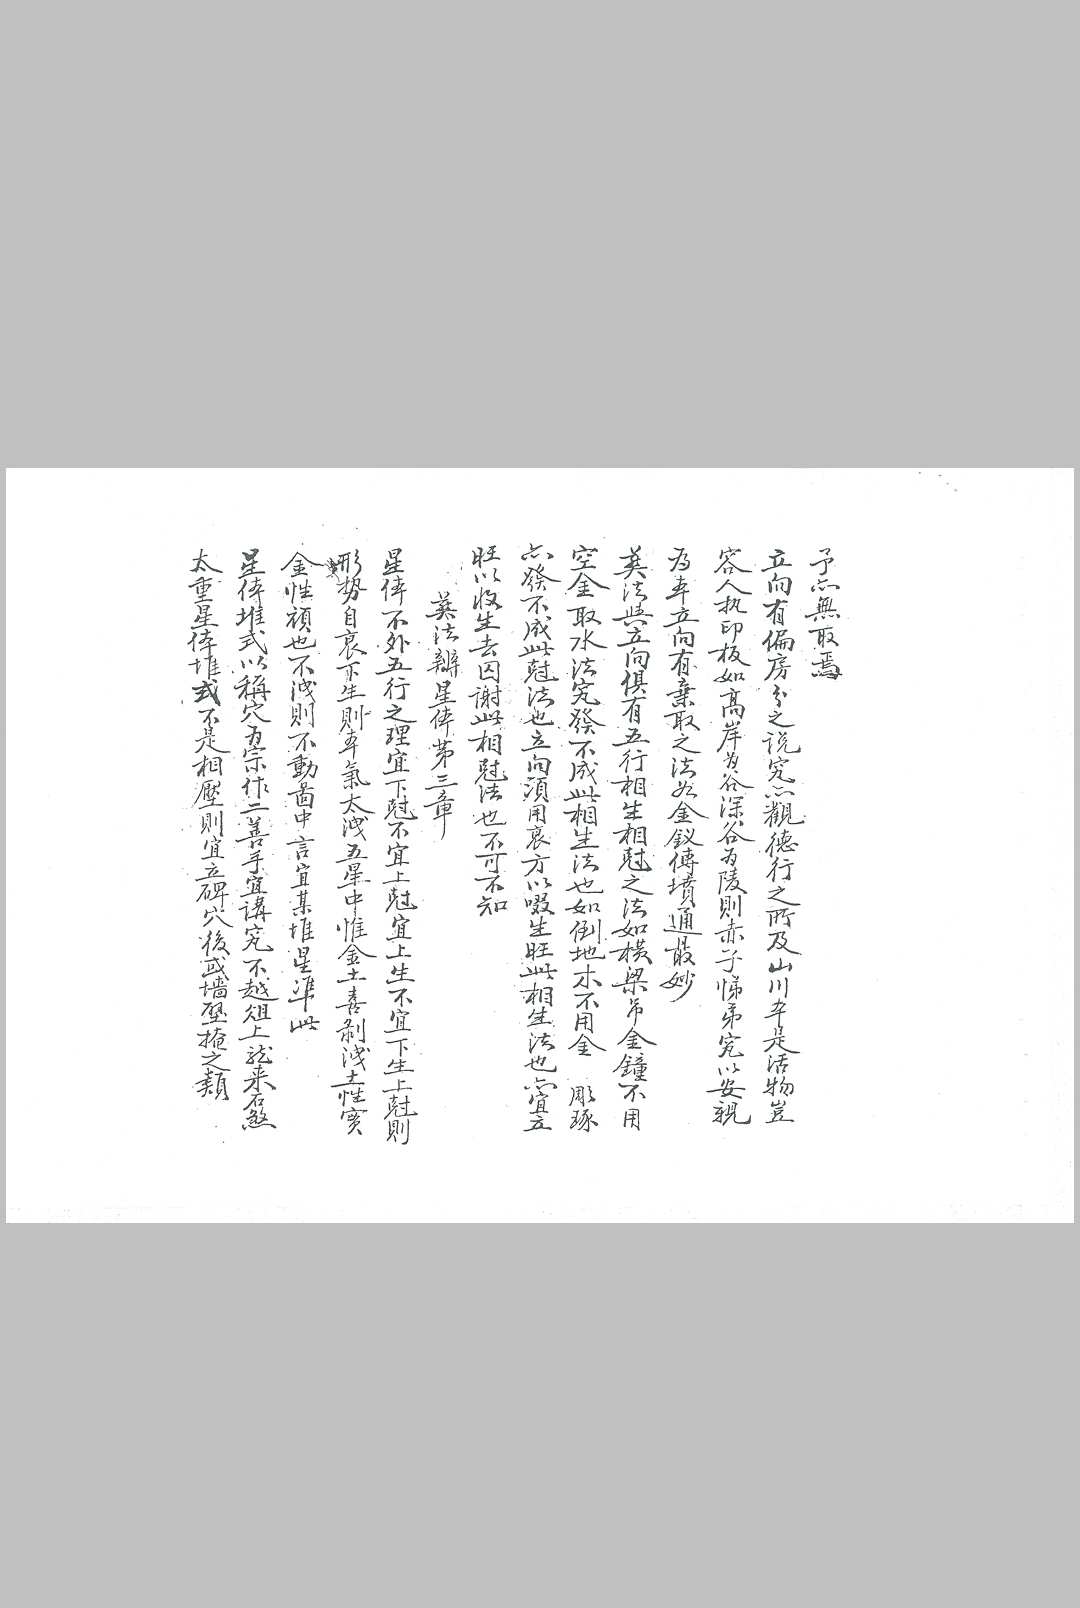 予亦無取焉
立向有偏房分之説究亦觀德行之所及山川本是活物豈
容人执印板如高岸为谷深谷为陵則赤子悌弟究以安親
为本立向有棄取之法然金釵傅墳通最妙
葬法與立向俱有五行相生相尅之法如横梁吊金鐘不用
空金取水法究發不成此相生法也如倒地木不用金 彫琢
亦發不成此尅法也立向須用衰方以啜生旺此相生法也亦宜立
旺以收生去囚謝此相尅法也不可不知
葬法辦星体苐三章
星体不外五行之理宜下尅不宜上尅宜上生不宜下生上尅則
形勢自衰下生則本氣太洩五星中惟金土喜剥洩土性实
金性頑也不洩則不動啚中言宜某堆星準此
星体堆式以稱穴为宗作二善手宜講究不越俎上龙来石煞
太重星体堆式不是相壓則宜立碑穴後或墙壁掩之類